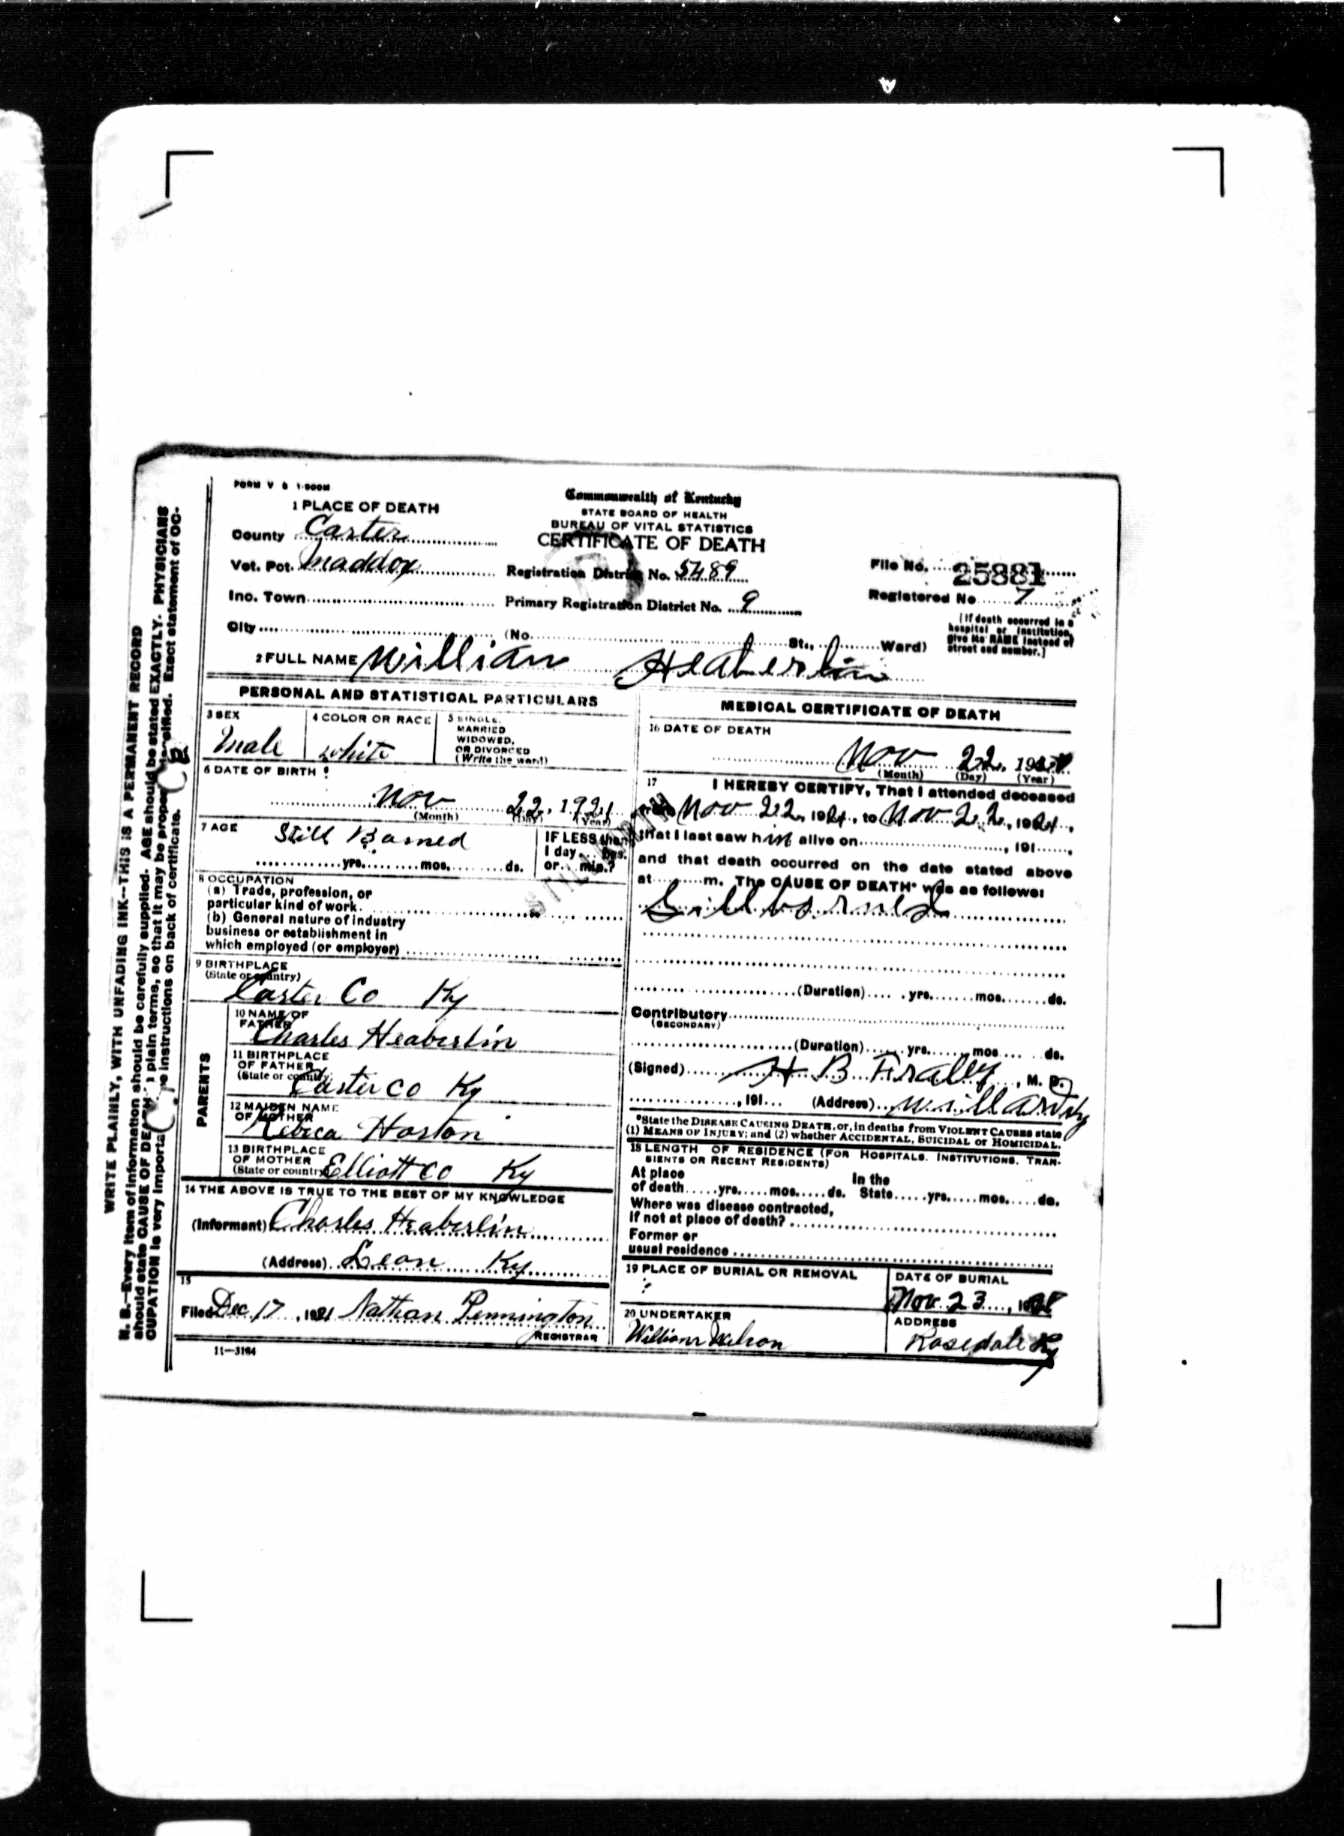 FORM V S 1-500M
Commonwealth of Kentucky
STATE BOARD OF HEALTH
BUREAU OF VITAL STATISTICS
CERTIFICATE OF DEATH
1 PLACE OF DEATH
County Carter
Vot. Pct. Maddox
Registration District No. 5489
File No. 25881
Inc. Town
Primary Registration District No. 9
Registered No 7
City (No. St., Ward)
[If death occurred in a
hospital or institution,
give its NAME instead of
street and number.]
2 FULL NAME Willian Heaberlin
PERSONAL AND STATISTICAL PARTICULARS
3 SEX
Male
4 COLOR OR RACE
white
5 SINGLE,
MARRIED
WIDOWED,
OR DIVORCED
(Write the word)
6 DATE OF BIRTH
Nov 22, 1921
(Month) (Day) (Year)
7 AGE
Still Borned
yrs. mos. ds.
IF LESS than
1 day hrs.
or min.?
STILLBIRTH
8 OCCUPATION
(a) Trade, profession, or
particular kind of work
(b) General nature of industry
business or establishment in
which employed (or employer)
9 BIRTHPLACE
(State or country)
Carter Co Ky
PARENTS
10 NAME OF
FATHER
Charles Heaberlin
11 BIRTHPLACE
OF FATHER
(State or country)
Carter Co Ky
12 MAIDEN NAME
OF MOTHER
Rebica Horton
13 BIRTHPLACE
OF MOTHER
(State or country)
Elliott Co Ky
14 THE ABOVE IS TRUE TO THE BEST OF MY KNOWLEDGE
(Informant) Charles Heaberlin
(Address) Leon Ky
15
Filed Dec 17, 1921 Nathan Pennington
REGISTRAR
11—3184
MEDICAL CERTIFICATE OF DEATH
16 DATE OF DEATH
Nov 22, 192
(Month) (Day) (Year)
17 I HEREBY CERTIFY, That I attended deceased
from Nov 22, 1921, to Nov 22, 1921,
that I last saw him alive on , 191 ,
and that death occurred on the date stated above
at m. The CAUSE OF DEATH* was as follows:
Sillborned
(Duration) yrs. mos. ds.
Contributory
(SECONDARY)
(Duration) yrs. mos ds.
(Signed) H B Fraley, M. D.
, 191 (Address) Willard Ky
*State the DISEASE CAUSING DEATH, or, in deaths from VIOLENT CAUSES state
(1) MEANS OF INJURY; and (2) whether ACCIDENTAL, SUICIDAL or HOMICIDAL.
18 LENGTH OF RESIDENCE (FOR HOSPITALS, INSTITUTIONS, TRAN-
SIENTS OR RECENT RESIDENTS)
At place In the
of death yrs. mos. ds. State yrs. mos. ds.
Where was disease contracted,
If not at place of death?
Former or
usual residence
19 PLACE OF BURIAL OR REMOVAL
DATE OF BURIAL
Nov 23, 19
20 UNDERTAKER
William Wilson
ADDRESS
Rosedale Ky
WRITE PLAINLY, WITH UNFADING INK—THIS IS A PERMANENT RECORD
N. B.—Every item of information should be carefully supplied. AGE should be stated EXACTLY. PHYSICIANS
should state CAUSE OF DEATH in plain terms, so that it may be properly classified. Exact statement of OC-
CUPATION is very important. See instructions on back of certificate.